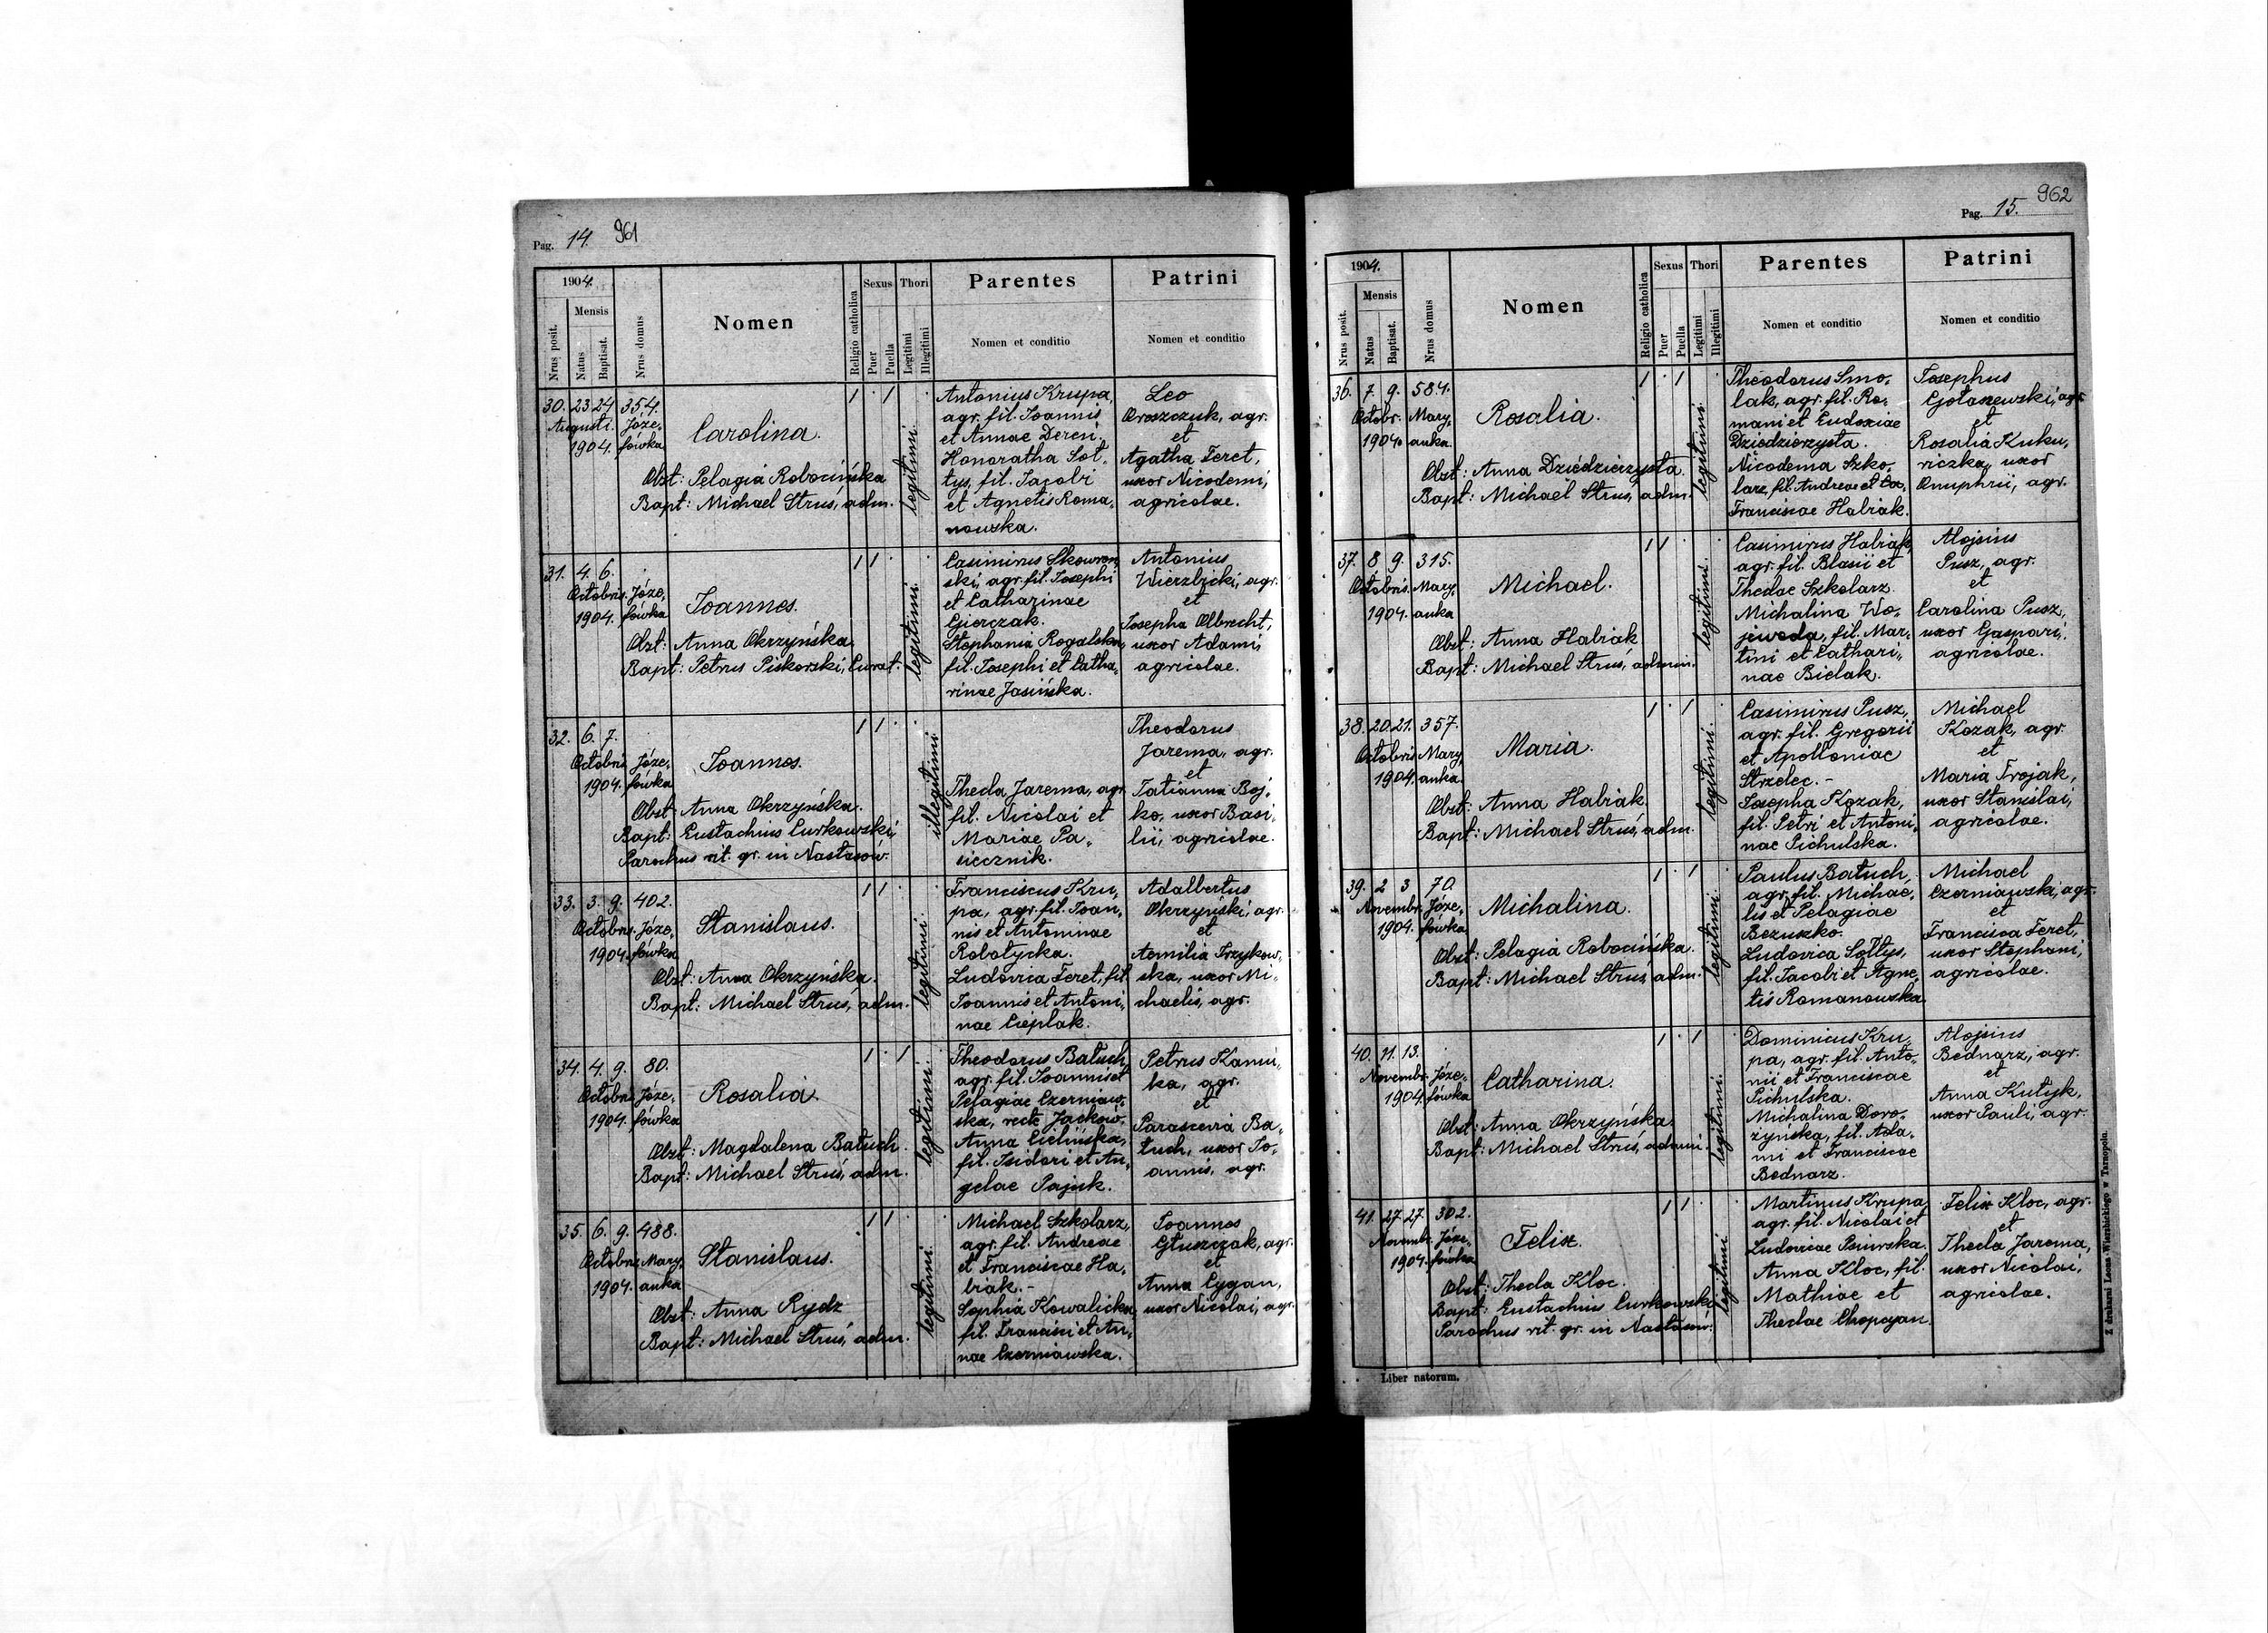 Pag. 14. 961
1904.
Mensis
Nrus posit.
Natus
Baptisat.
Nrus domus
Nomen
Religio catholica
Sexus
Puer
Puella
Thori
Legitimi
Illegitimi
Parentes
Nomen et conditio
Patrini
Nomen et conditio
30. 23 24 354.
Augusti. Józe-
1904. fówka
Carolina.
Obst: Pelagia Robocińska
Bapt: Michael Struś, adm.
legitimi.
Antonius Krupa,
agr. fil. Joannis
et Annae Dereń.
Honoratha Soł-
tys, fil. Jacobi
et Agnetis Roma-
nowska.
Leo
Oroszczuk, agr.
et
Agatha Feret,
uxor Nicodemi,
agricolae.
31. 4. 6.
Octobris. Józe-
1904. fówka
Joannes.
Obst: Anna Okrzyńska
Bapt: Petrus Piskorski, Curat.
legitimi.
Casimirus Skowroń-
ski, agr. fil. Josephi
et Catharinae
Gierczak.
Stephania Rogalska,
fil. Josephi et Catha-
rinae Jasińska.
Antonius
Wierzbicki, agr.
et
Josepha Olbrecht,
uxor Adami,
agricolae.
32. 6. 7.
Octobris Józe-
1904. fówka
Joannes.
Obst: Anna Okrzyńska.
Bapt: Eustachius Curkowski,
Parochus rit. gr. in Nastasów.
illegitimi.
Thecla Jarema, agr.
fil. Nicolai et
Mariae Pa-
siecznik.
Theodorus
Jarema, agr.
et
Tatianna Boj-
ko, uxor Basi-
lii, agricolae.
33. 3. 9. 402.
Octobris. Józe-
1904. fówka
Stanislaus.
Obst: Anna Okrzyńska.
Bapt: Michael Struś, adm.
legitimi.
Franciscus Kru-
pa, agr. fil. Joan-
nis et Antoninae
Robotycka.
Ludovica Feret, fil.
Joannis et Antoni-
nae Cieplak.
Adalbertus
Okrzyński, agr.
et
Aemilia Trzykow-
ska, uxor Mi-
chaelis, agr.
34. 4. 9. 80.
Octobris Józe-
1904. fówka
Rosalia.
Obst: Magdalena Batuch.
Bapt: Michael Struś, adm.
legitimi.
Theodorus Batuch,
agr. fil. Joannis et
Pelagiae Czerniaw-
ska, recte Jacków.
Anna Cielińska,
fil. Isidori et An-
gelae Pajuk.
Petrus Kamu-
ka, agr.
et
Parascevia Ba-
tuch, uxor Jo-
annis, agr.
35. 6. 9. 488.
Octobris Mary-
1904. anka
Stanislaus.
Obst: Anna Rydz
Bapt: Michael Struś, adm.
legitimi.
Michael Szkolarz,
agr. fil. Andreae
et Franciscae Ha-
biak.-
Sophia Kowalicka,
fil. Francisci et An-
nae Czerniawska.
Joannes
Głuszczak, agr.
et
Anna Cygan,
uxor Nicolai, agr.
Pag. 15. 962
1904.
Mensis
Nrus posit.
Natus
Baptisat.
Nrus domus
Nomen
Religio catholica
Sexus
Puer
Puella
Thori
Legitimi
Illegitimi
Parentes
Nomen et conditio
Patrini
Nomen et conditio
36. 7. 9. 584.
Octobr. Mary-
1904. anka.
Rosalia.
Obst: Anna Dziedzierzysta.
Bapt: Michael Struś, adm.
legitimi.
Theodorus Smo-
lak, agr. fil. Ro-
mani et Eudoxiae
Dziedzierzysta.
Nicodema Szko-
larz, fil. Andreae et
Franciscae Habiak.
Josephus
Gołaszewski, agr.
et
Rosalia Kuku-
riczka, uxor
Onuphrii, agr.
37. 8. 9. 315.
Octobris. Mary-
1904. anka
Michael.
Obst: Anna Habiak
Bapt: Michael Struś, admin.
legitimi.
Casimirus Habiak,
agr. fil. Blasii et
Theclae Szkolarz.
Michalina Wo-
jewoda, fil. Mar-
tini et Cathari-
nae Bielak.
Alojsius
Pusz, agr.
et
Carolina Pusz,
uxor Gaspari,
agricolae.
38. 20. 21. 357.
Octobris Mary-
1904. anka.
Maria.
Obst: Anna Habiak
Bapt: Michael Struś, adm.
legitimi.
Casimirus Pusz,
agr. fil. Gregorii
et Apolloniae
Strzelec.-
Josepha Kozak,
fil. Petri et Antoni-
nae Pichulska.
Michael
Kozak, agr.
et
Maria Trojak,
uxor Stanislai,
agricolae.
39. 2 3 70.
Novembr. Józe-
1904. fówka
Michalina.
Obst: Pelagia Robocińska.
Bapt: Michael Struś, adm.
legitimi.
Paulus Batuch,
agr. fil. Michae-
lis et Pelagiae
Bezuszko.
Ludovica Sołtys,
fil. Jacobi et Agne-
tis Romanowska.
Michael
Czerniawski, agr.
et
Francisca Feret,
uxor Stephani,
agricolae.
40. 11. 13.
Novembr. Józe-
1904. fówka
Catharina.
Obst: Anna Okrzyńska.
Bapt: Michael Struś, admin.
legitimi.
Dominicus Kru-
pa, agr. fil. Anto-
nii et Franciscae
Pichulska.
Michalina Doro-
żyńska, fil. Ada-
mi et Franciscae
Bednarz.
Alojsius
Bednarz, agr.
et
Anna Kutyk,
uxor Pauli, agr.
41. 27. 27. 302.
Novembr. Józe-
1904. fówka
Felix.
Obst: Thecla Kloc.
Bapt: Eustachius Curkowski
Parochus rit. gr. in Nastasow.
legitimi
Martinus Krupa,
agr. fil. Nicolai et
Ludovicae Psiurska.
Anna Kloc, fil.
Mathiae et
Theclae Chopcyan.
Felix Kloc, agr.
et
Thecla Jarema,
uxor Nicolai,
agricolae.
Liber natorum.
Z drukarni Leona Wierzbickiego w Tarnopolu.